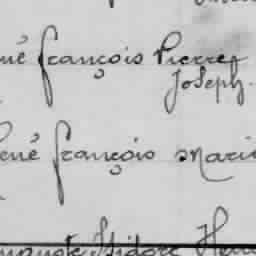 né françois Pierre
Joseph.
ené françois Mari
Isidore